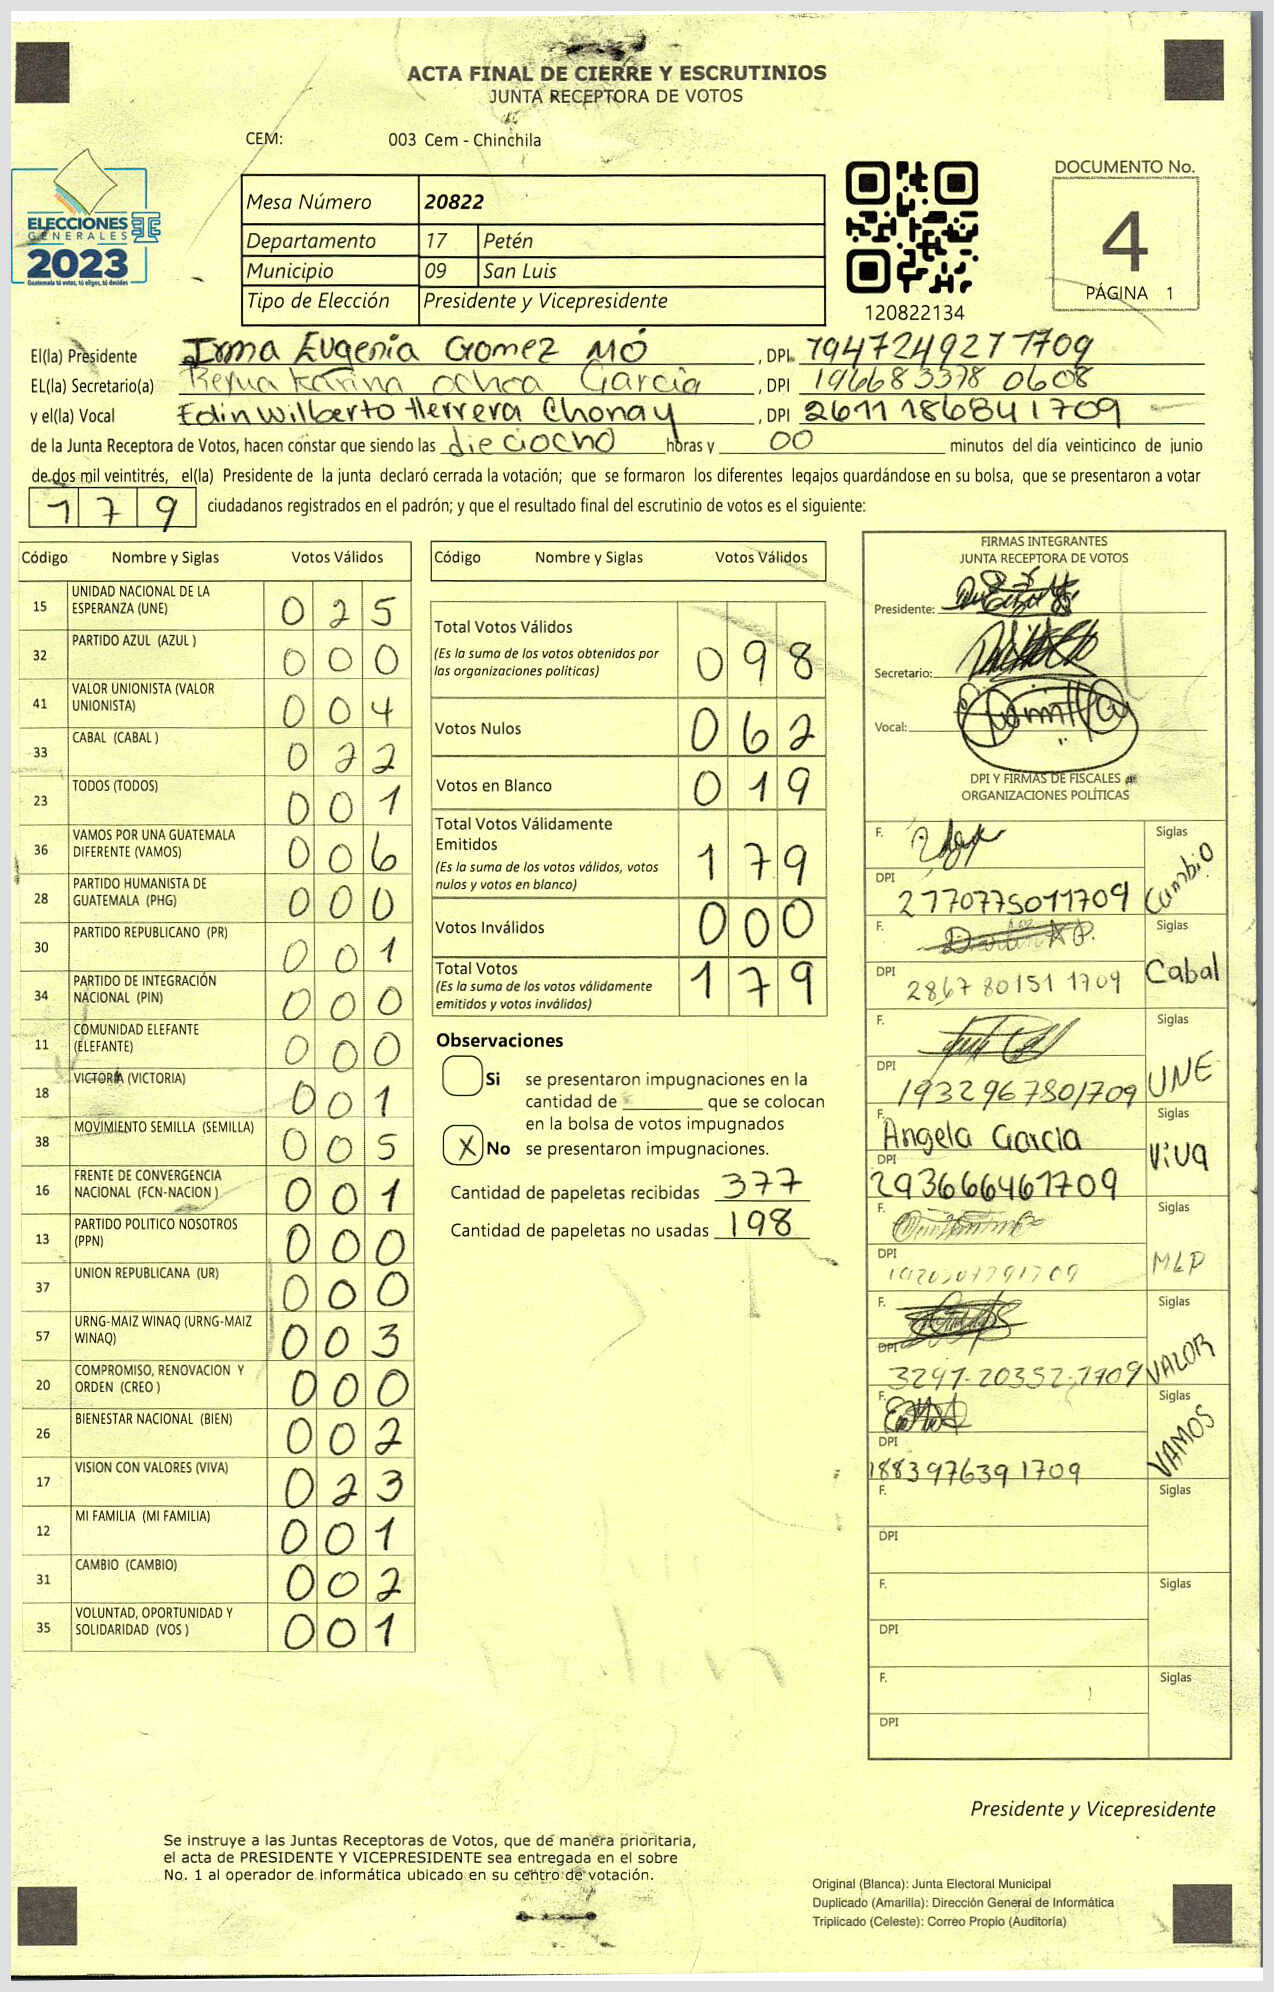 ACTA FINAL DE CIERRE Y ESCRUTINIOS
JUNTA RECEPTORA DE VOTOS
CEM: 003 Cem - Chinchila
ELECCIONES
GENERALES
2023
Guatemala tú votas, tú eliges, tú decides
Mesa Número 20822
Departamento 17 Petén
Municipio 09 San Luis
Tipo de Elección Presidente y Vicepresidente
120822134
DOCUMENTO No.
4
PÁGINA 1
El(la) Presidente Irma Eugenia Gomez MO, DPI. 1947249271709
EL(la) Secretario(a) Karina ochoa Garcia, DPI 196683378 0608
y el(la) Vocal Edin Wilberto Herrera Chonay, DPI 2611186841709
de la Junta Receptora de Votos, hacen constar que siendo las dieciocho horas y 00 minutos del día veinticinco de junio
de dos mil veintitrés, el(la) Presidente de la junta declaró cerrada la votación; que se formaron los diferentes legajos guardándose en su bolsa, que se presentaron a votar
179 ciudadanos registrados en el padrón; y que el resultado final del escrutinio de votos es el siguiente:
Código Nombre y Siglas Votos Válidos
15 UNIDAD NACIONAL DE LA ESPERANZA (UNE) 025
32 PARTIDO AZUL (AZUL ) 000
41 VALOR UNIONISTA (VALOR UNIONISTA) 004
33 CABAL (CABAL ) 022
23 TODOS (TODOS) 001
36 VAMOS POR UNA GUATEMALA DIFERENTE (VAMOS) 006
28 PARTIDO HUMANISTA DE GUATEMALA (PHG) 000
30 PARTIDO REPUBLICANO (PR) 001
34 PARTIDO DE INTEGRACIÓN NACIONAL (PIN) 000
11 COMUNIDAD ELEFANTE (ELEFANTE) 000
18 VICTORIA (VICTORIA) 001
38 MOVIMIENTO SEMILLA (SEMILLA) 005
16 FRENTE DE CONVERGENCIA NACIONAL (FCN-NACION ) 001
13 PARTIDO POLITICO NOSOTROS (PPN) 000
37 UNION REPUBLICANA (UR) 000
57 URNG-MAIZ WINAQ (URNG-MAIZ WINAQ) 003
20 COMPROMISO, RENOVACION Y ORDEN (CREO ) 000
26 BIENESTAR NACIONAL (BIEN) 002
17 VISION CON VALORES (VIVA) 023
12 MI FAMILIA (MI FAMILIA) 001
31 CAMBIO (CAMBIO) 002
35 VOLUNTAD, OPORTUNIDAD Y SOLIDARIDAD (VOS ) 001
Código Nombre y Siglas Votos Válidos
Total Votos Válidos 098
(Es la suma de los votos obtenidos por
las organizaciones políticas)
Votos Nulos 062
Votos en Blanco 019
Total Votos Válidamente
Emitidos 179
(Es la suma de los votos válidos, votos
nulos y votos en blanco)
Votos Inválidos 000
Total Votos 179
(Es la suma de los votos válidamente
emitidos y votos inválidos)
Observaciones
Si se presentaron impugnaciones en la
cantidad de ________ que se colocan
en la bolsa de votos impugnados
X No se presentaron impugnaciones.
Cantidad de papeletas recibidas 377
Cantidad de papeletas no usadas 198
FIRMAS INTEGRANTES
JUNTA RECEPTORA DE VOTOS
Presidente:
Secretario:
Vocal:
DPI Y FIRMAS DE FISCALES
ORGANIZACIONES POLÍTICAS
F. Siglas Cambio
DPI 2770775011709
F. Siglas Cabal
DPI 2867 80151 1709
F. Siglas UNE
DPI 1932967801709
F. Angela Garcia Siglas Viva
DPI 293666461709
F. Siglas MLP
DPI
F. Siglas VALOR
DPI 3297-20352-1709
F. Siglas VAMOS
DPI 1883976391709
F. Siglas
DPI
F. Siglas
DPI
F. Siglas
DPI
Presidente y Vicepresidente
Se instruye a las Juntas Receptoras de Votos, que de manera prioritaria,
el acta de PRESIDENTE Y VICEPRESIDENTE sea entregada en el sobre
No. 1 al operador de informática ubicado en su centro de votación.
Original (Blanca): Junta Electoral Municipal
Duplicado (Amarilla): Dirección General de Informática
Triplicado (Celeste): Correo Propio (Auditoría)